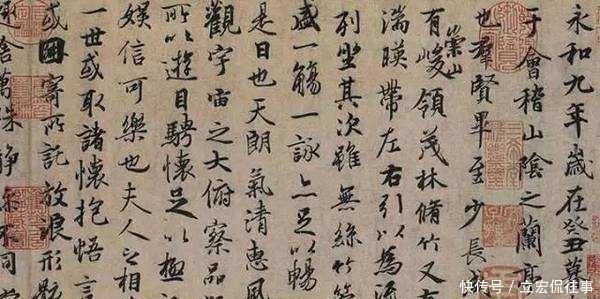 永和九年歲在癸丑暮
于會稽山陰之蘭亭
也羣賢畢至少長
崇山
有峻領茂林脩竹又有
湍暎帶左右引以為流
列坐其次雖無絲竹管
盛一觴一詠亦足以暢
是日也天朗氣清惠風
觀宇宙之大俯察品
所以遊目騁懷足以極
娛信可樂也夫人之相
一世或取諸懷抱悟言
或因寄所託放浪形骸
舍萬殊靜躁不同當
快传号 / 立宏侃往事